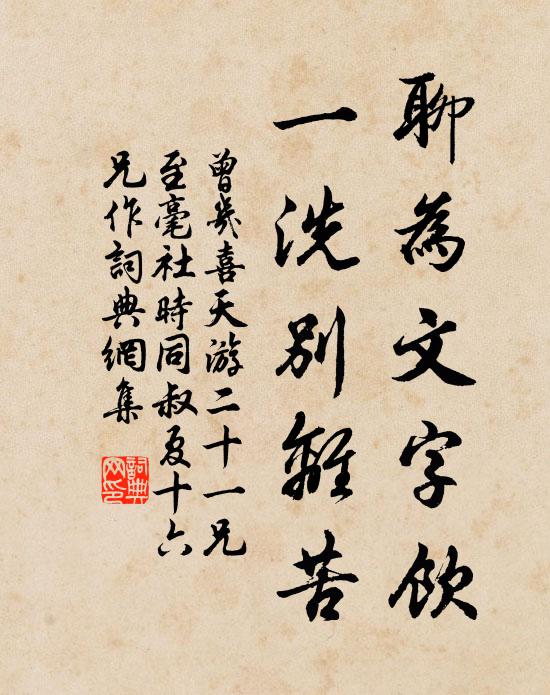 聊為文字飲
一洗別離苦
曾幾喜天游二十一兄
至毫社時同叔夏十六
兄作詞典網集
詞典網印